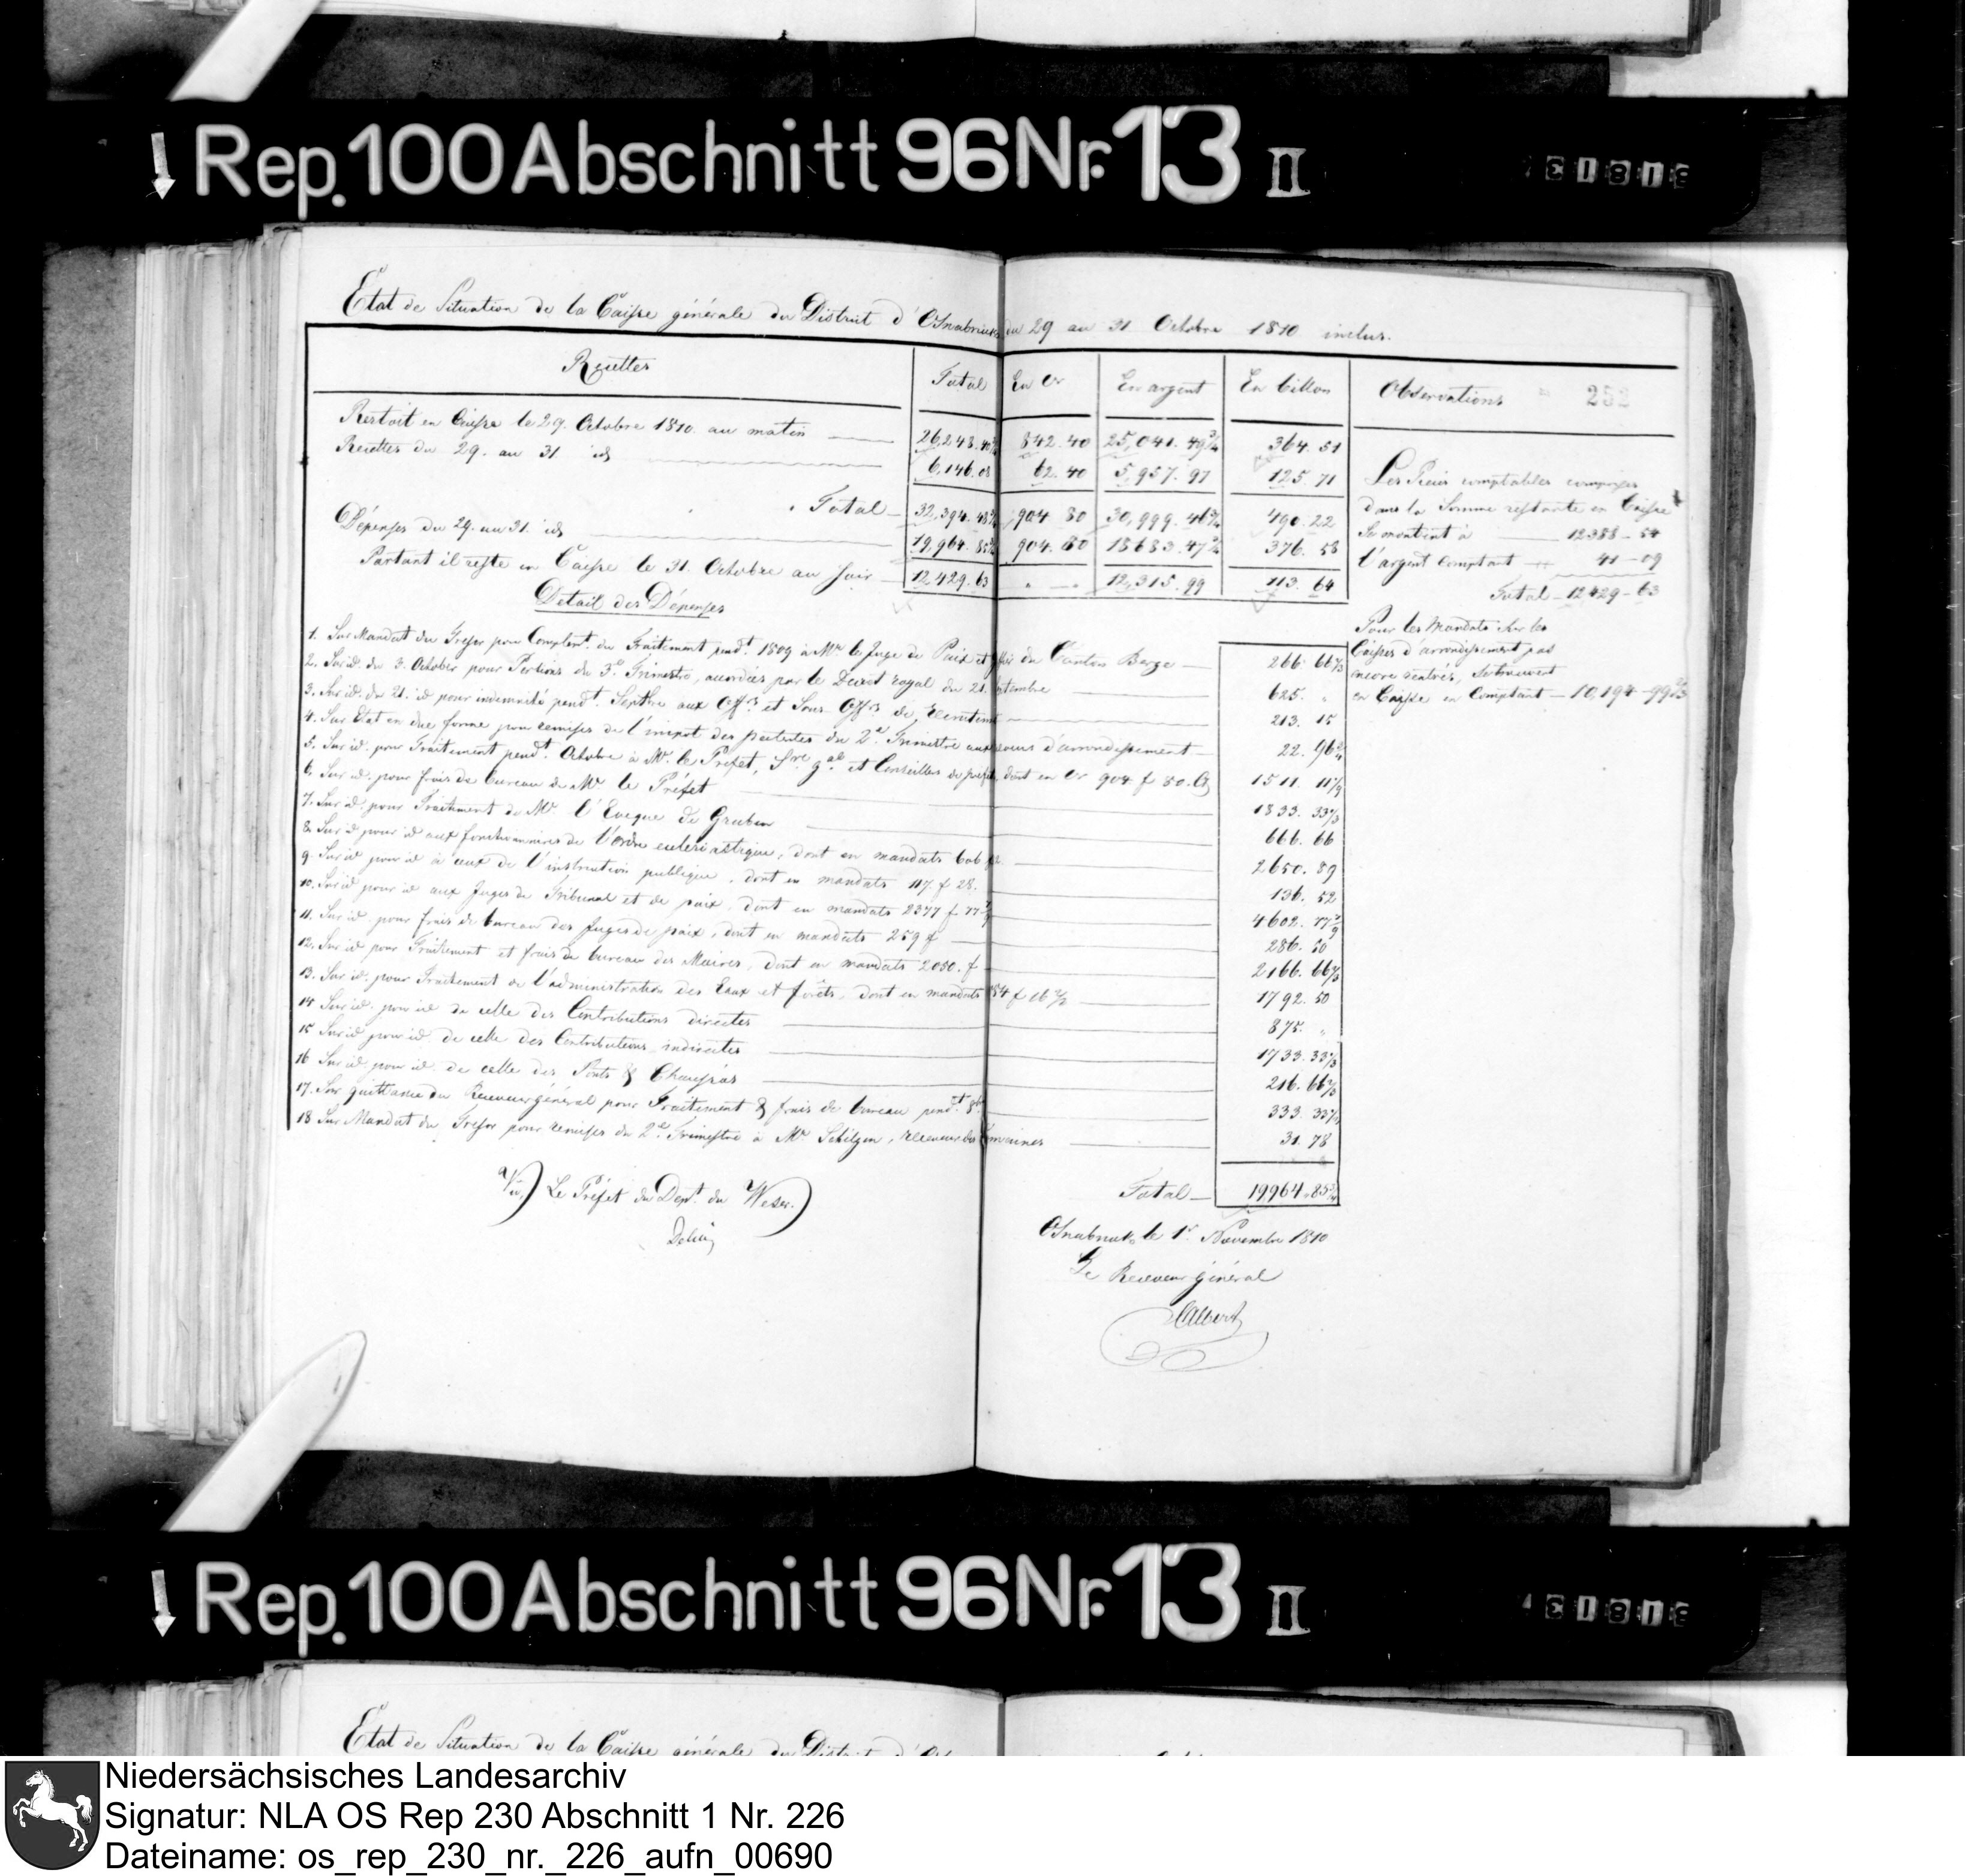 Rep. 100 Abschnitt 96 Nr. 13 II
Etat de Situation de la Caisse générale du District d'Osnabruck du 29 au 31 Octobre 1810 inclus.
Recettes Total En or En argent En billon Observations 252
Restoit en Caisse le 29. Octobre 1810. au matin 26,248. 842. 40 25,041. 49 3/4 364. 51
Recettes du 29. au 31. id 6,146. 08 62. 40 5,957. 97 125. 71
Total 32,394. 904 80 30,999. 46 3/4 490. 22
Dépenses du 29. au 31. id 19,964. 85 3/4 904. 80 18683. 47 3/4 376. 58
Partant il reste en Caisse le 31. Octobre au soir 12,429. 63 " — " 12,315. 99 113. 64
Les Pieces comptables comprises
dans la Somme restante en Caisse
Se montent à 12388 - 54
l'argent comptant 41 - 09
Total - 12429 - 63
Pour les Mandats sur les
Caisses d'arrondissement pas
encore rentrés, se trouvent
en Caisse en Comptant - 10,194 - 99
Detail des Dépenses
1. Sur Mandat du Tresor pour Complent. du Traitement pendt. 1809 à Mr. le Juge de Paix et du Canton Berge 266. 66 2/3
2. Sur id. du 3. October pour Portions du 3e. Trimestre, accordées par le Decret royal du 21. Septembre 625. "
3. Sur id. du 21. id pour indemnité pendt. Septbre aux Offrs et Sous Offrs de Recrutemt 213. 15
4. Sur Etat en due forme pour remises de l'impot des patentes du 2e. Trimestre aux d'arrondissement 22. 96 3/4
5. Sur id. pour Traitement pendt. Octobre à Mr. le Prefet, Sre. gal et Conseillers de prefre, dont en or 904 f 80. Cs 1511. 11 1/9
6. Sur id. pour frais de bureau de Mr. le Préfet 1833. 33 1/3
7. Sur id. pour Traitement de Mr. l'Eveque de Gruben 666. 66
8. Sur id pour id aux fonctionnaires de l'ordre ecclesiastique, dont en mandats 606 2650. 89
9. Sur id pour id à ceux de l'instruction publique, dont en mandats 117. f 28. 136. 52
10. Sur id pour id aux Juges de Tribunal et de paix, dont en mandats 2377 f 77 7/9 4602. 77 7/9
11. Sur id. pour frais de bureau des Juges de paix, dont en mandats 259 f 286. 50
12. Sur id pour Traitement et frais de bureau des Maires, dont en mandats 2050. f 2166. 66 2/3
13. Sur id. pour Traitement de l'administration des Eaux et forêts, dont en mandats f 16 2/3 1792. 50
14 Sur id. pour id de celle des Contributions directes 875. "
15 Sur id pour id. de celle des Contributions indirectes 1733. 33 1/3
16 Sur id pour id. de celle des Ponts & Chaussées 216. 66 2/3
17. Sur quittance du Receveur général pour Traitement & frais de bureau pendt. 8b. 333. 33 1/3
18 Sur Mandat du Tresor pour remises du 2e. Trimestre à Mr. receveur des Domaines 31. 78
Total 19964. 85 3/4
Le Préfet du Dept. du Weser.
Delius
Osnabruck le 1r. Novembre 1810
Le Receveur général
Rep. 100 Abschnitt 96 Nr. 13 II
Etat de Situation de la Caisse générale du District
Niedersächsisches Landesarchiv
Signatur: NLA OS Rep 230 Abschnitt 1 Nr. 226
Dateiname: os_rep_230_nr._226_aufn_00690